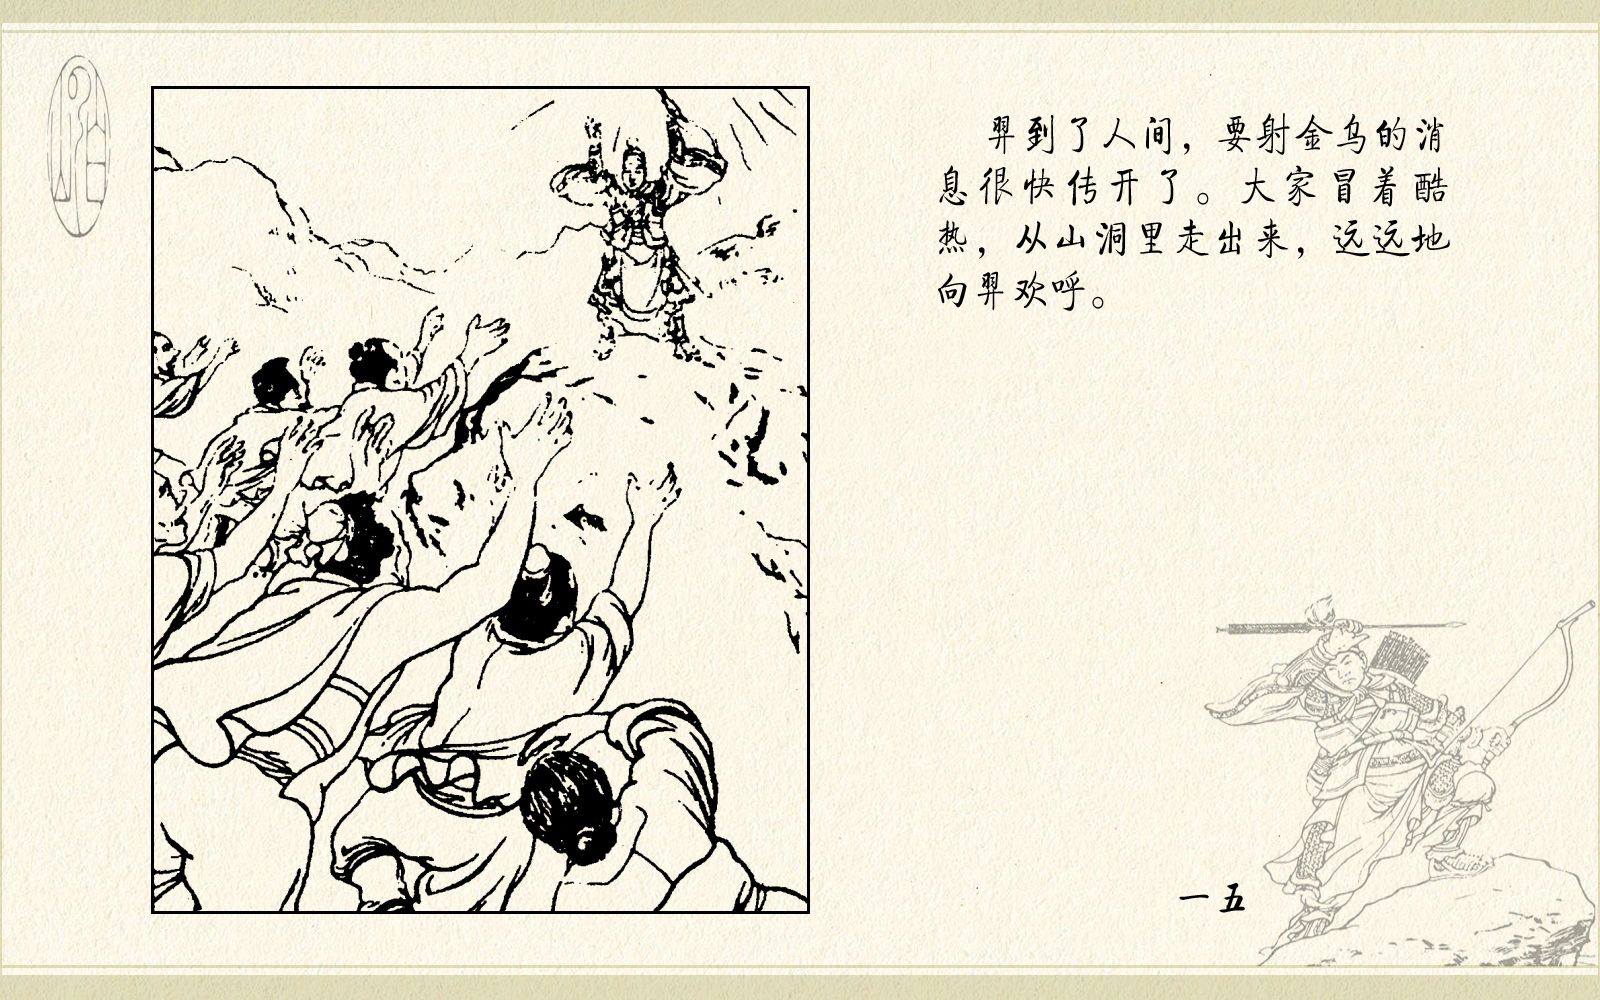 羿到了人间，要射金乌的消
息很快传开了。大家冒着酷
热，从山洞里走出来，远远地
向羿欢呼。
一五